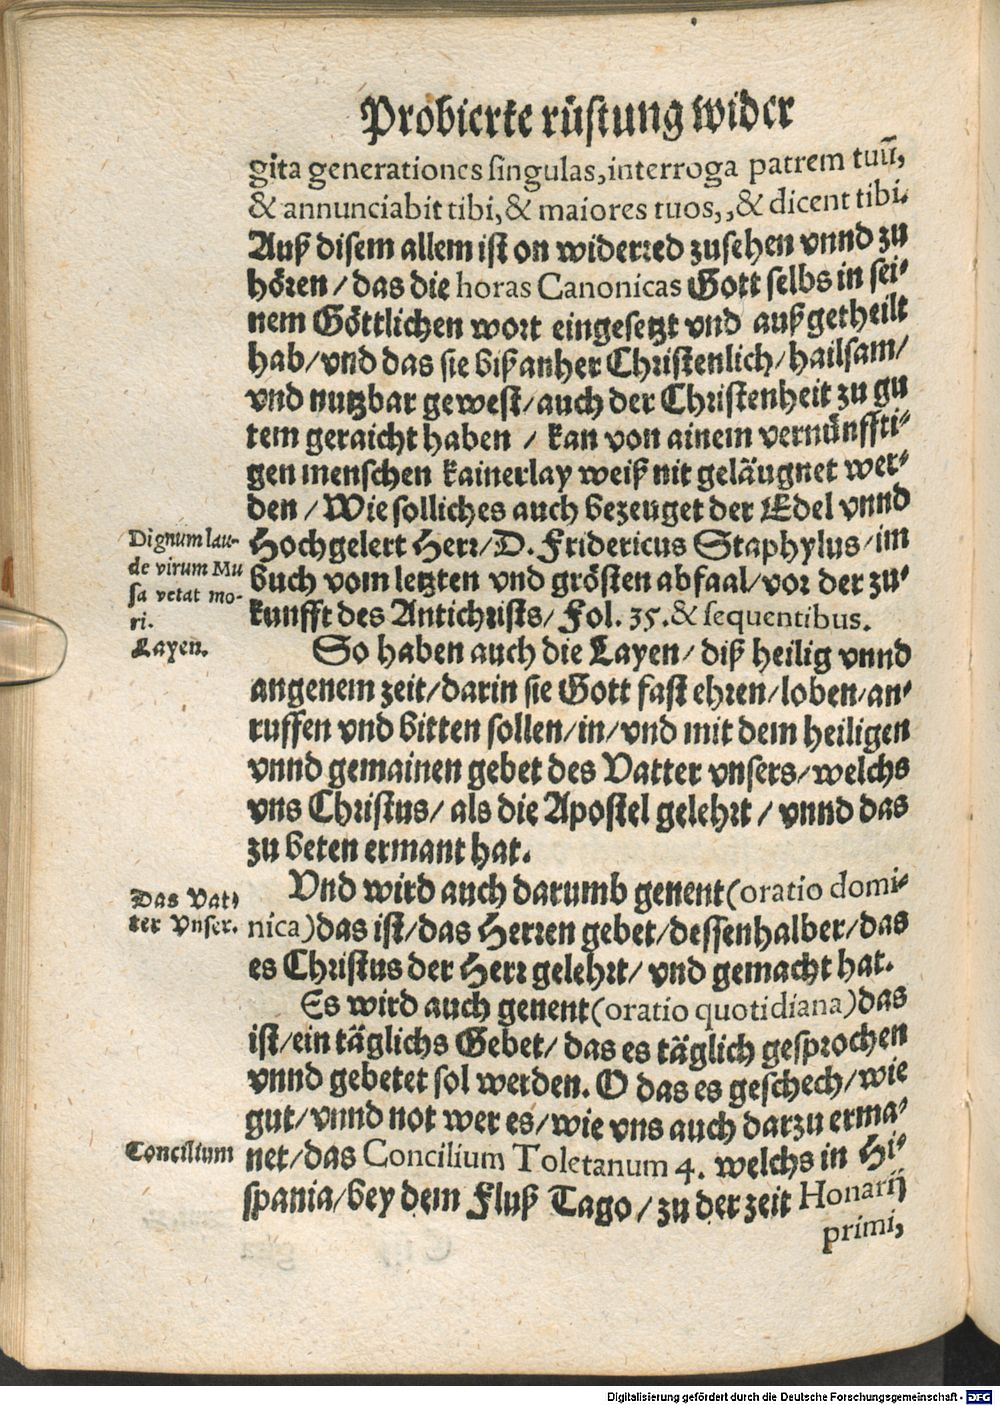 Probierte rüstung wider
gita generationes singulas, interroga patrem tuū,
& annunciabit tibi, & maiores tuos,, & dicent tibi.
Auß disem allem ist on widerred zusehen vnnd zu
hören / das die horas Canonicas Gott selbs in sei⸗
nem Göttlichen wort eingesetzt vnd außgetheilt
hab/ vnd das sie bißanher Christenlich/ hailsam/
vnd nutzbar gewest/ auch der Christenheit zu gu
tem geraicht haben / kan von ainem vernünffti⸗
gen menschen kainerlay weiß nit geläugnet wer⸗
den / Wie solliches auch bezeuget der Edel vnnd
Hochgelert Herr/ D. Fridericus Staphylus/ im
buch vom letzten vnd grösten abfaal/ vor der zu⸗
kunfft des Antichrists/ Fol. 35. & sequentibus.
Dignum lau-
de virum Mu
sa vetat mo-
ri.
Layen.
So haben auch die Layen/ diß heilig vnnd
angenem zeit/ darin sie Gott fast ehren/ loben/ an⸗
ruffen vnd bitten sollen/ in/ vnd mit dem heiligen
vnnd gemainen gebet des Vatter vnsers/ welchs
vns Christus/ als die Apostel gelehrt / vnnd das
zu beten ermant hat.
Das Vat⸗
ter Vnser.
Vnd wird auch darumb genent (oratio domi⸗
nica) das ist/ das Herren gebet/ dessenhalber/ das
es Christus der Herr gelehrt/ vnd gemacht hat.
Es wird auch genent (oratio quotidiana) das
ist/ ein täglichs Gebet/ das es täglich gesprochen
vnnd gebetet sol werden. O das es geschech/ wie
gut/ vnnd not wer es/ wie vns auch darzu erma⸗
Concilium
net/ das Concilium Toletanum 4. welchs in Hi⸗
spania/ bey dem Fluß Tago / zu der zeit Honarij
primi,
Digitalisierung gefördert durch die Deutsche Forschungsgemeinschaft - DFG